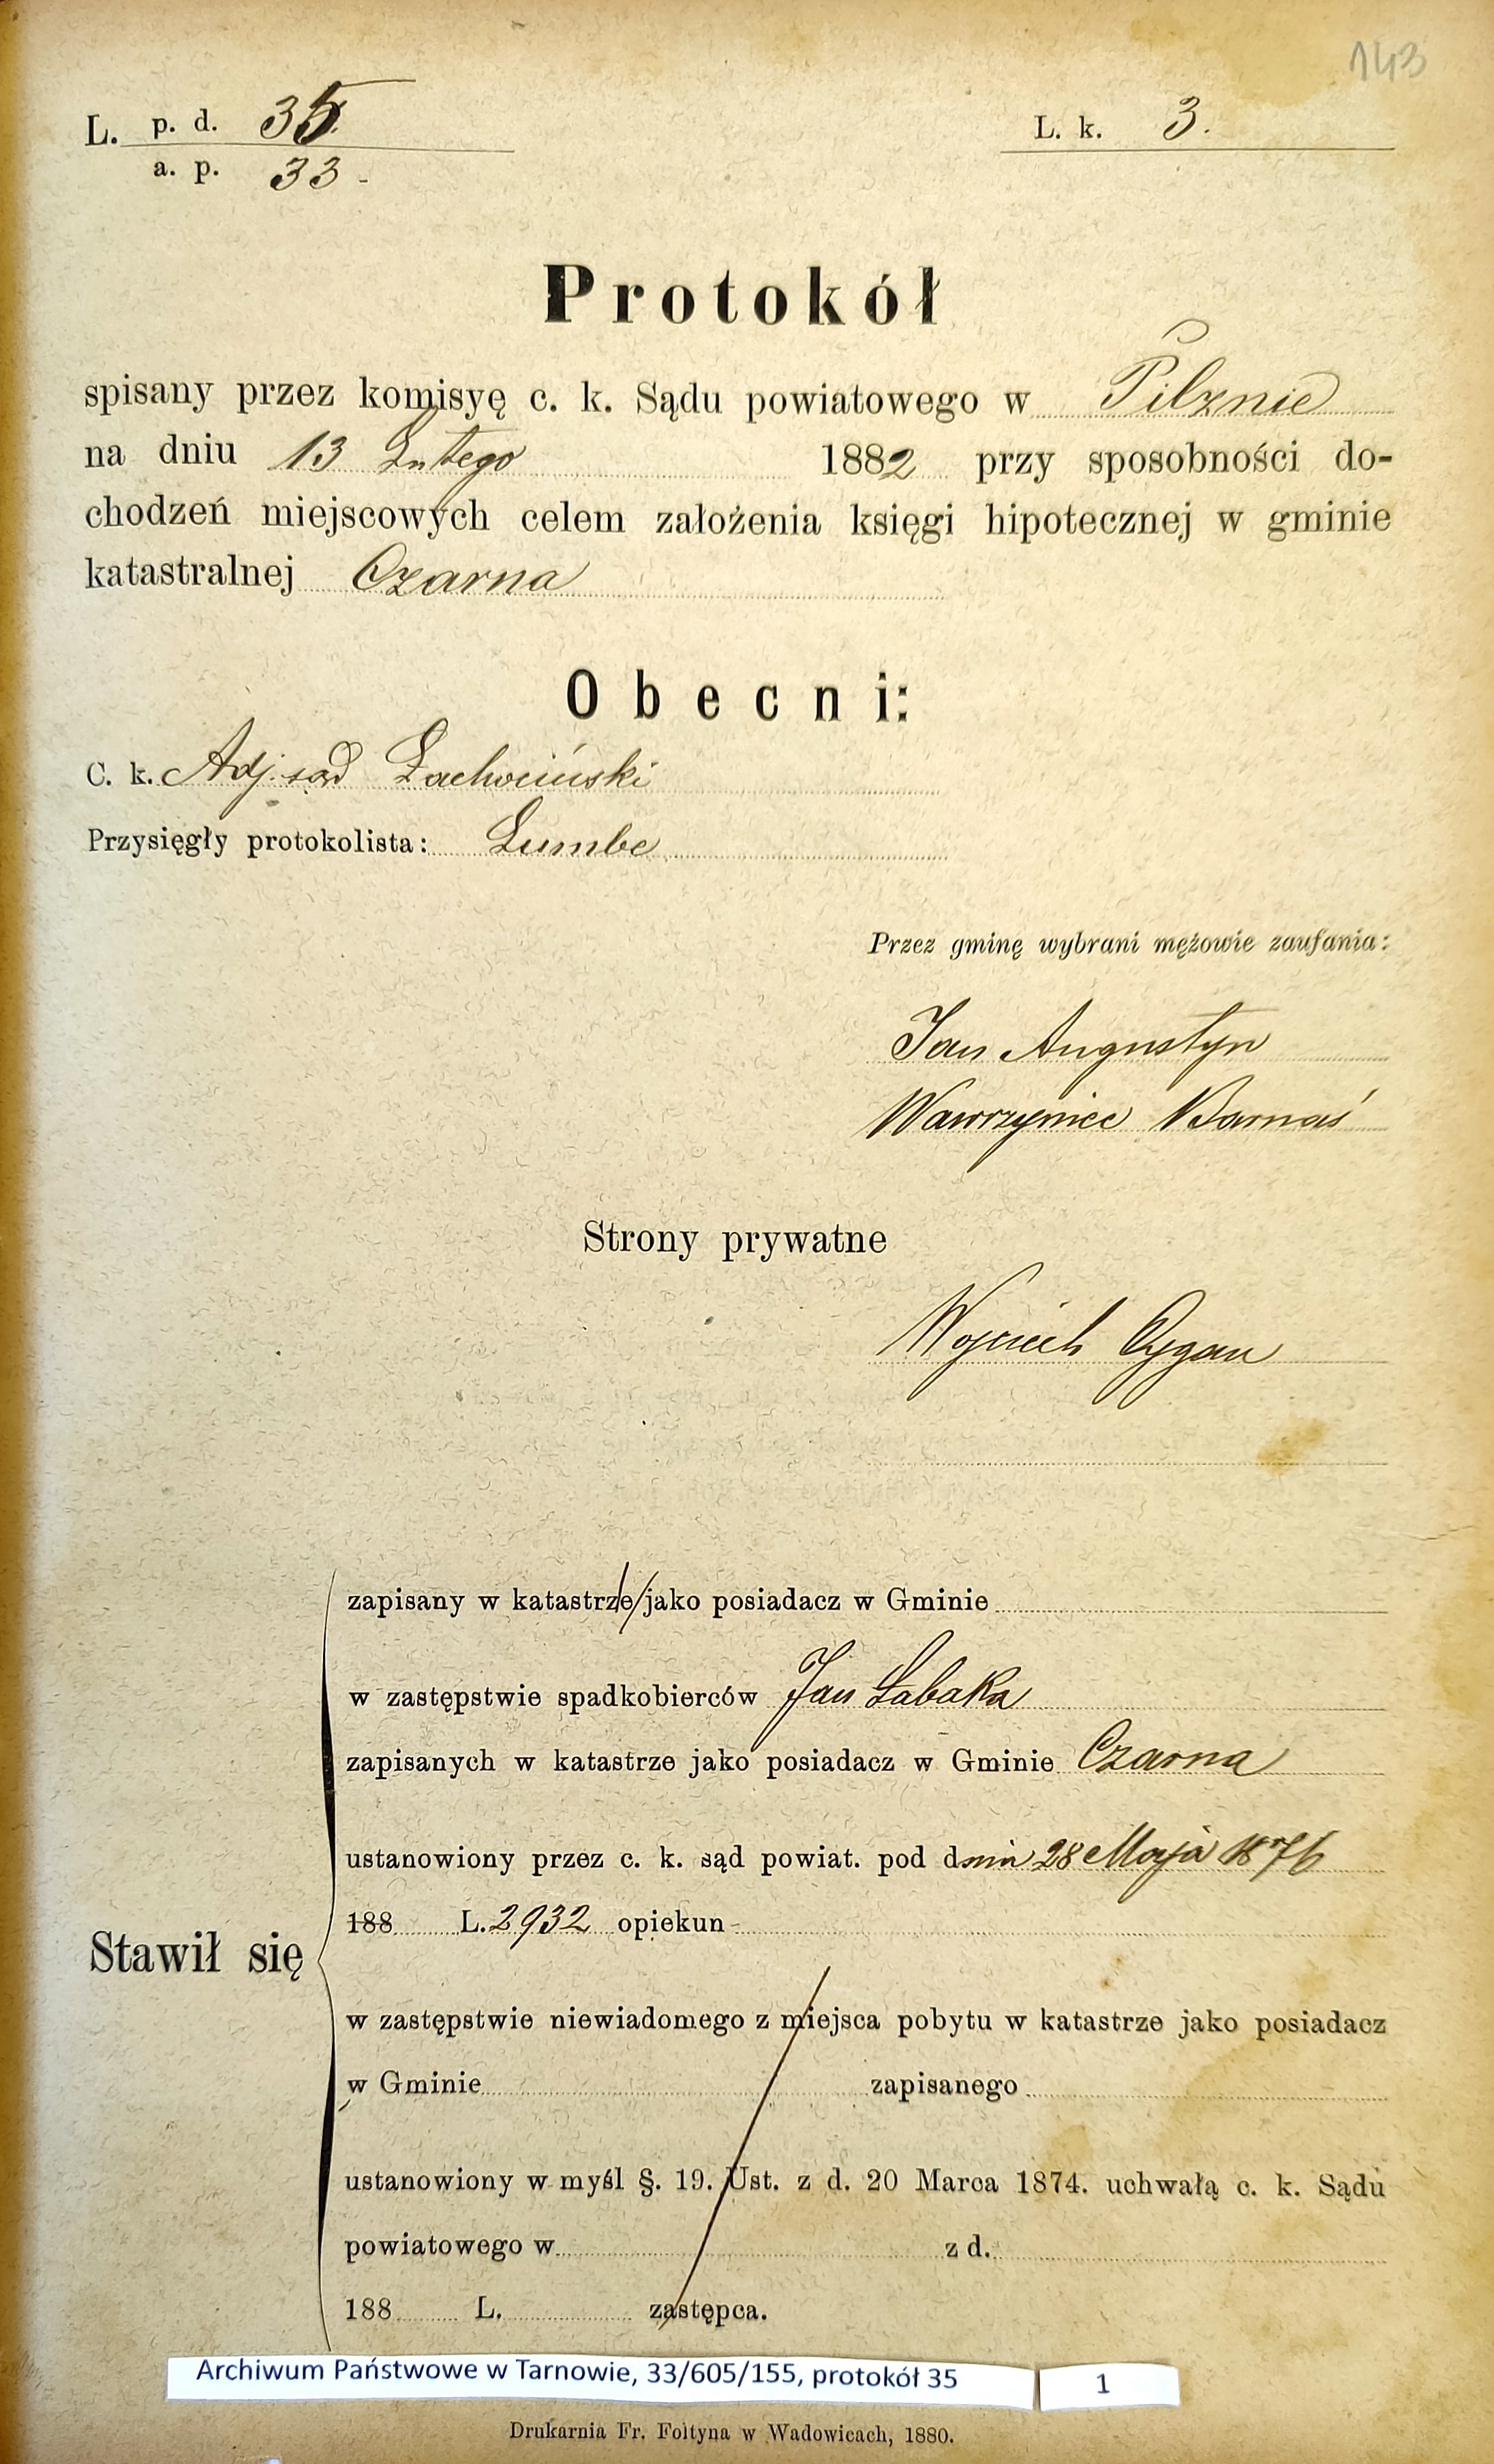 143
L. p. d. 35.
a. p. 33 -
L. k. 3.
Protokół
spisany przez komisyę c. k. Sądu powiatowego w Pilznie
na dniu 13 Lutego 1882 przy sposobności do-
chodzeń miejscowych celem założenia księgi hipotecznej w gminie
katastralnej Czarna
Obecni:
C. k. Adj. sąd
Przysięgły protokolista:
Przez gminę wybrani mężowie zaufania:
Jan Augustyn
Wawrzyniec Barnaś
Strony prywatne
Wojciech Cygan
zapisany w katastrze jako posiadacz w Gminie
w zastępstwie spadkobierców Jan Łabaka
zapisanych w katastrze jako posiadacz w Gminie Czarna
ustanowiony przez c. k. sąd powiat. pod dnia 28 Maja 1876
188 L. 2932 opiekun -
Stawił się
w zastępstwie niewiadomego z miejsca pobytu w katastrze jako posiadacz
w Gminie zapisanego
ustanowiony w myśl §. 19. Ust. z d. 20 Marca 1874. uchwałą c. k. Sądu
powiatowego w z d.
188 L. zastępca.
Archiwum Państwowe w Tarnowie, 33/605/155, protokół 35 1
Drukarnia Fr. Foltyna w Wadowicach, 1880.